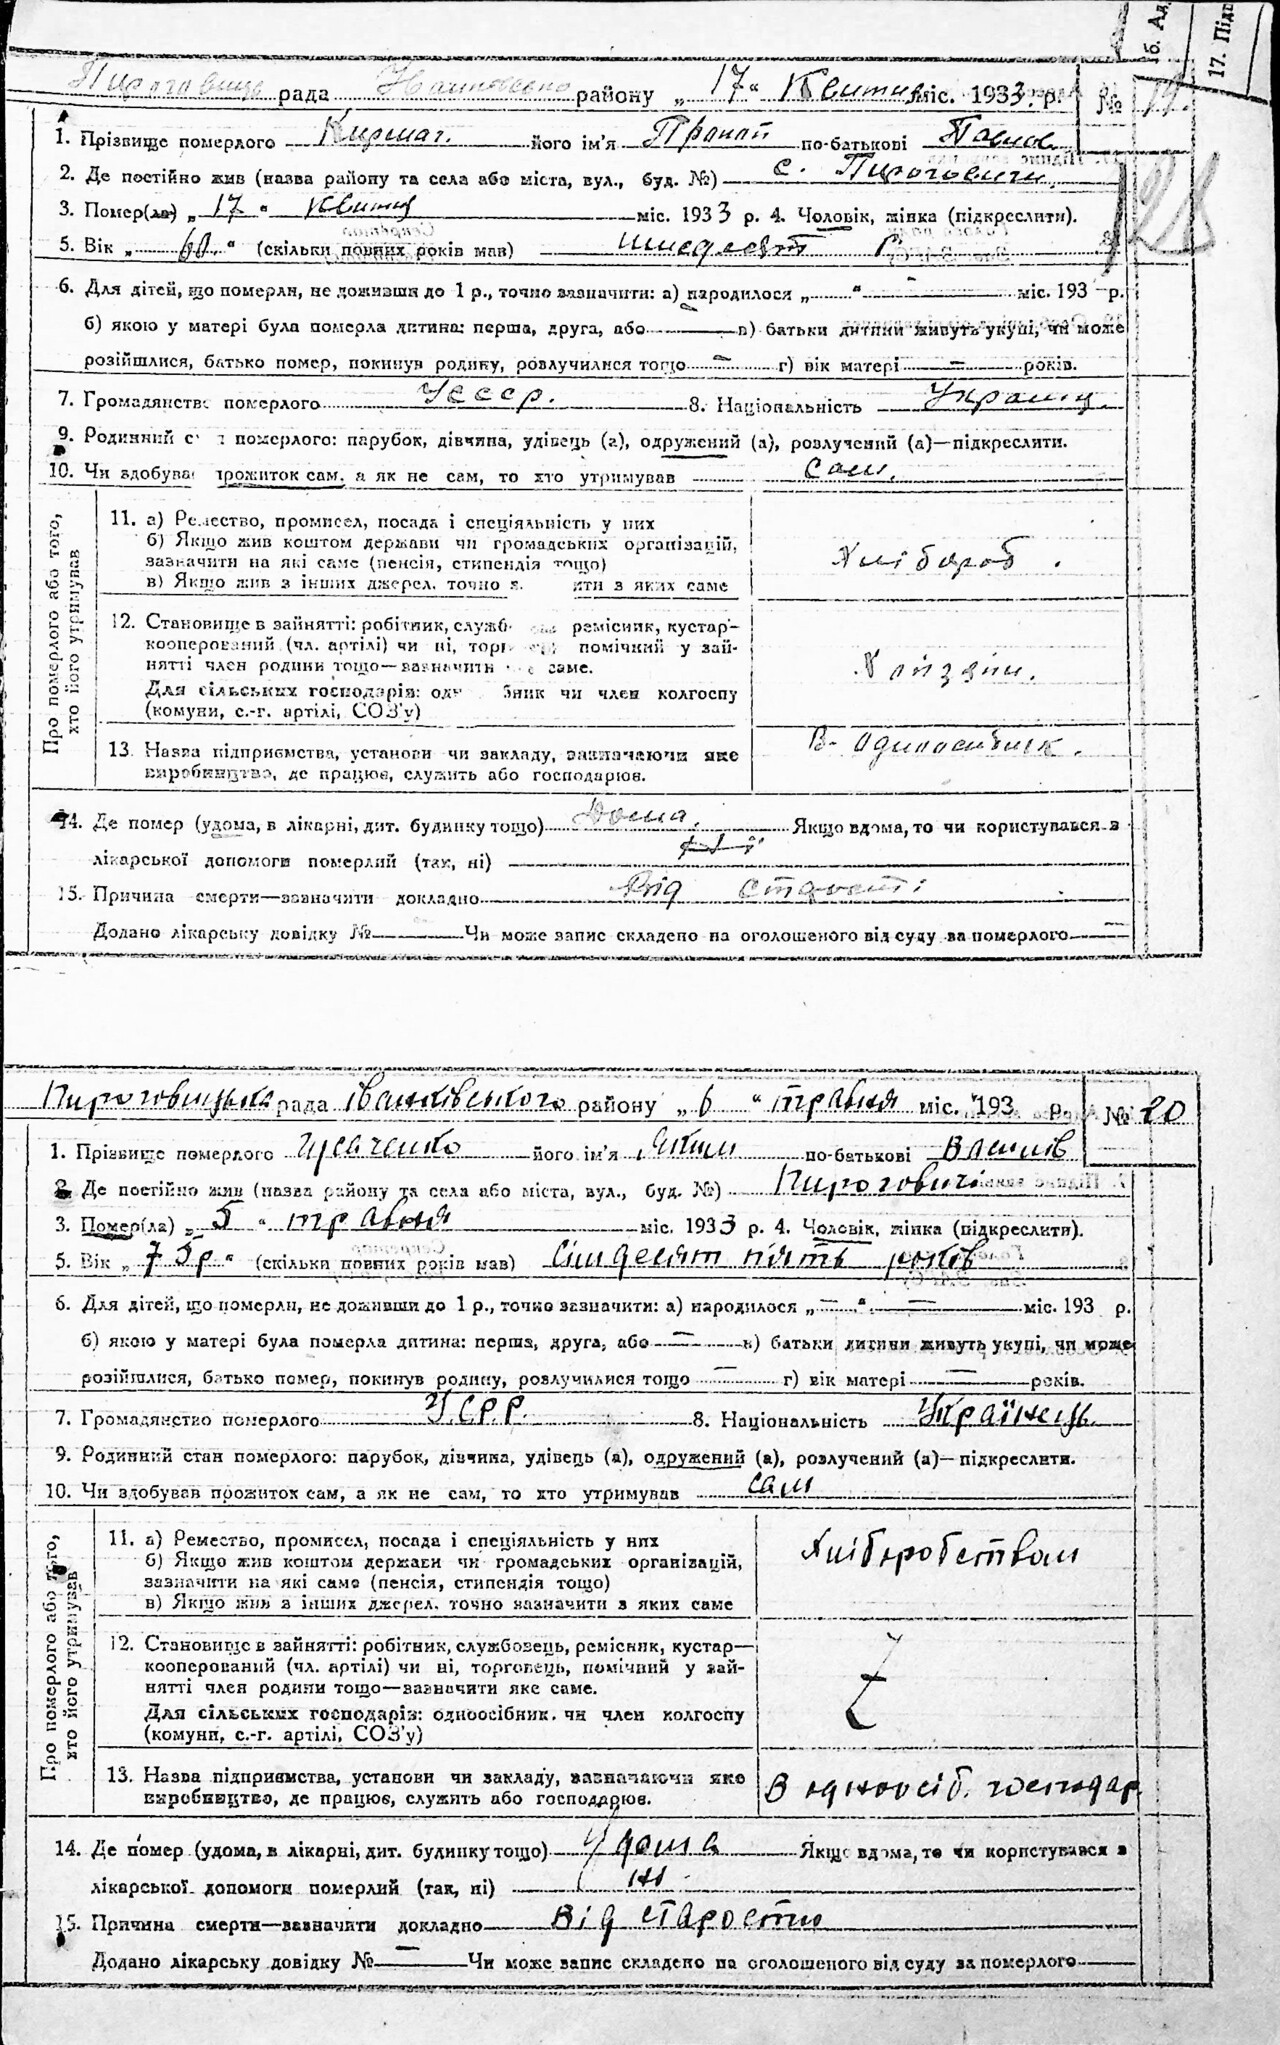 16. Ад
17. Підп
Пироговицьк рада районy „17“ Квітня міс. 1933 р. № 19.
1. Прізвище померлого його ім'я по-батькові
128
2. Де постійно жив (назва району та села або міста, вул., буд. №) с. Пироговичи
3. Помер(ла) „17“ Квітня міс. 1933 р. 4. Чоловік, жінка (підкреслити).
5. Вік „60.“ (скільки повних років мав) шісдесят р.
6. Для дітей, що померли, не доживши до 1 р., точно зазначити: а) народилося „ “ – міс. 193 – р.
б) якою у матері була померла дитина: перша, друга, або в) батьки дитини живуть укупі, чи може
розійшлися, батько помер, покинув родину, розлучилися тощо – г) вік матері – років.
7. Громадянство померлого УССР. 8. Національність Украинц.
9. Родинний с н померлого: парубок, дівчина, удівець (а), одружений (а), розлучений (а)—підкреслити.
10. Чи здобува прожиток сам, а як не сам, то хто утримував сам.
Про померлого або того,
хто його утримував
11. а) Ремество, промисел, посада і спеціяльність у них
б) Якщо жив коштом держави чи громадських організацій,
зазначити на які саме (пенсія, стипендія тощо)
в) Якщо жив з інших джерел, точно з ити з яких саме
Хлібороб.
12. Становище в зайнятті: робітник, служб ремісник, кустар-
кооперований (чл. артілі) чи ні, торг помічний у зай-
нятті член родини тощо—зазначити яке саме.
Для сільських господарів: од бник чи член колгоспу
(комуни, с.-г. артілі, СОЗ'у)
Хлізяін.
13. Назва підприємства, установи чи закладу, зазначаючи яке
виробництво, де працює, служить або господарює.
В- односибник.
14. Де помер (удома, в лікарні, дит. будинку тощо) Дома. Якщо вдома, то чи користувався з
лікарської допомоги померлий (так, ні)
15. Причина смерти—зазначити докладно Від старості
Додано лікарську довідку № Чи може запис складено на оголошеного від суду за померлого –
Пироговицька рада іванківського району „6“ травня міс. 193 р. № 20
1. Прізвище померлого його ім'я Яким по-батькові Власів
2. Де постійно жив (назва району та села або міста, вул., буд. №) Пироговичі
3. Помер(ла) „5“ травня міс. 1933 р. 4. Чоловік, жінка (підкреслити).
5. Вік „75р“ (скільки повних років мав) сімдесят пять років
6. Для дітей, що померли, не доживши до 1 р., точно зазначити: а) народилося „–“ – міс. 193 р.
б) якою у матері була померла дитина: перша, друга, або – в) батьки дитини живуть укупі, чи може
розійшлися, батько помер, покинув родину, розлучилися тощо – г) вік матері – років.
7. Громадянство померлого У.С.Р.Р. 8. Національність Українець.
9. Родинний стан померлого: парубок, дівчина, удівець (а), одружений (а), розлучений (а)—підкреслити.
10. Чи здобував прожиток сам, а як не сам, то хто утримував сам
Про померлого або того,
хто його утримував
11. а) Ремество, промисел, посада і спеціяльність у них
б) Якщо жив коштом держави чи громадських організацій,
зазначити на які саме (пенсія, стипендія тощо)
в) Якщо жив з інших джерел, точно зазначити з яких саме
Хліборобством
12. Становище в зайнятті: робітник, службовець, ремісник, кустар—
кооперований (чл. артілі) чи ні, торговець, помічний у зай-
нятті член родини тощо—зазначити яке саме.
Для сільських господарів: одноосібник, чи член колгоспу
(комуни, с.-г. артілі, СОЗ'у)
13. Назва підприємства, установи чи закладу, зазначаючи яке
виробництво, де працює, служить або господарює.
В одноосіб. господар.
14. Де помер (удома, в лікарні, дит. будинку тощо) Удома Якщо вдома, то чи користувався з
лікарської допомоги померлий (так, ні) ні
15. Причина смерти—зазначити докладно Від старости
Додано лікарську довідку № – Чи може запис складено на оголошеного від суду за померлого